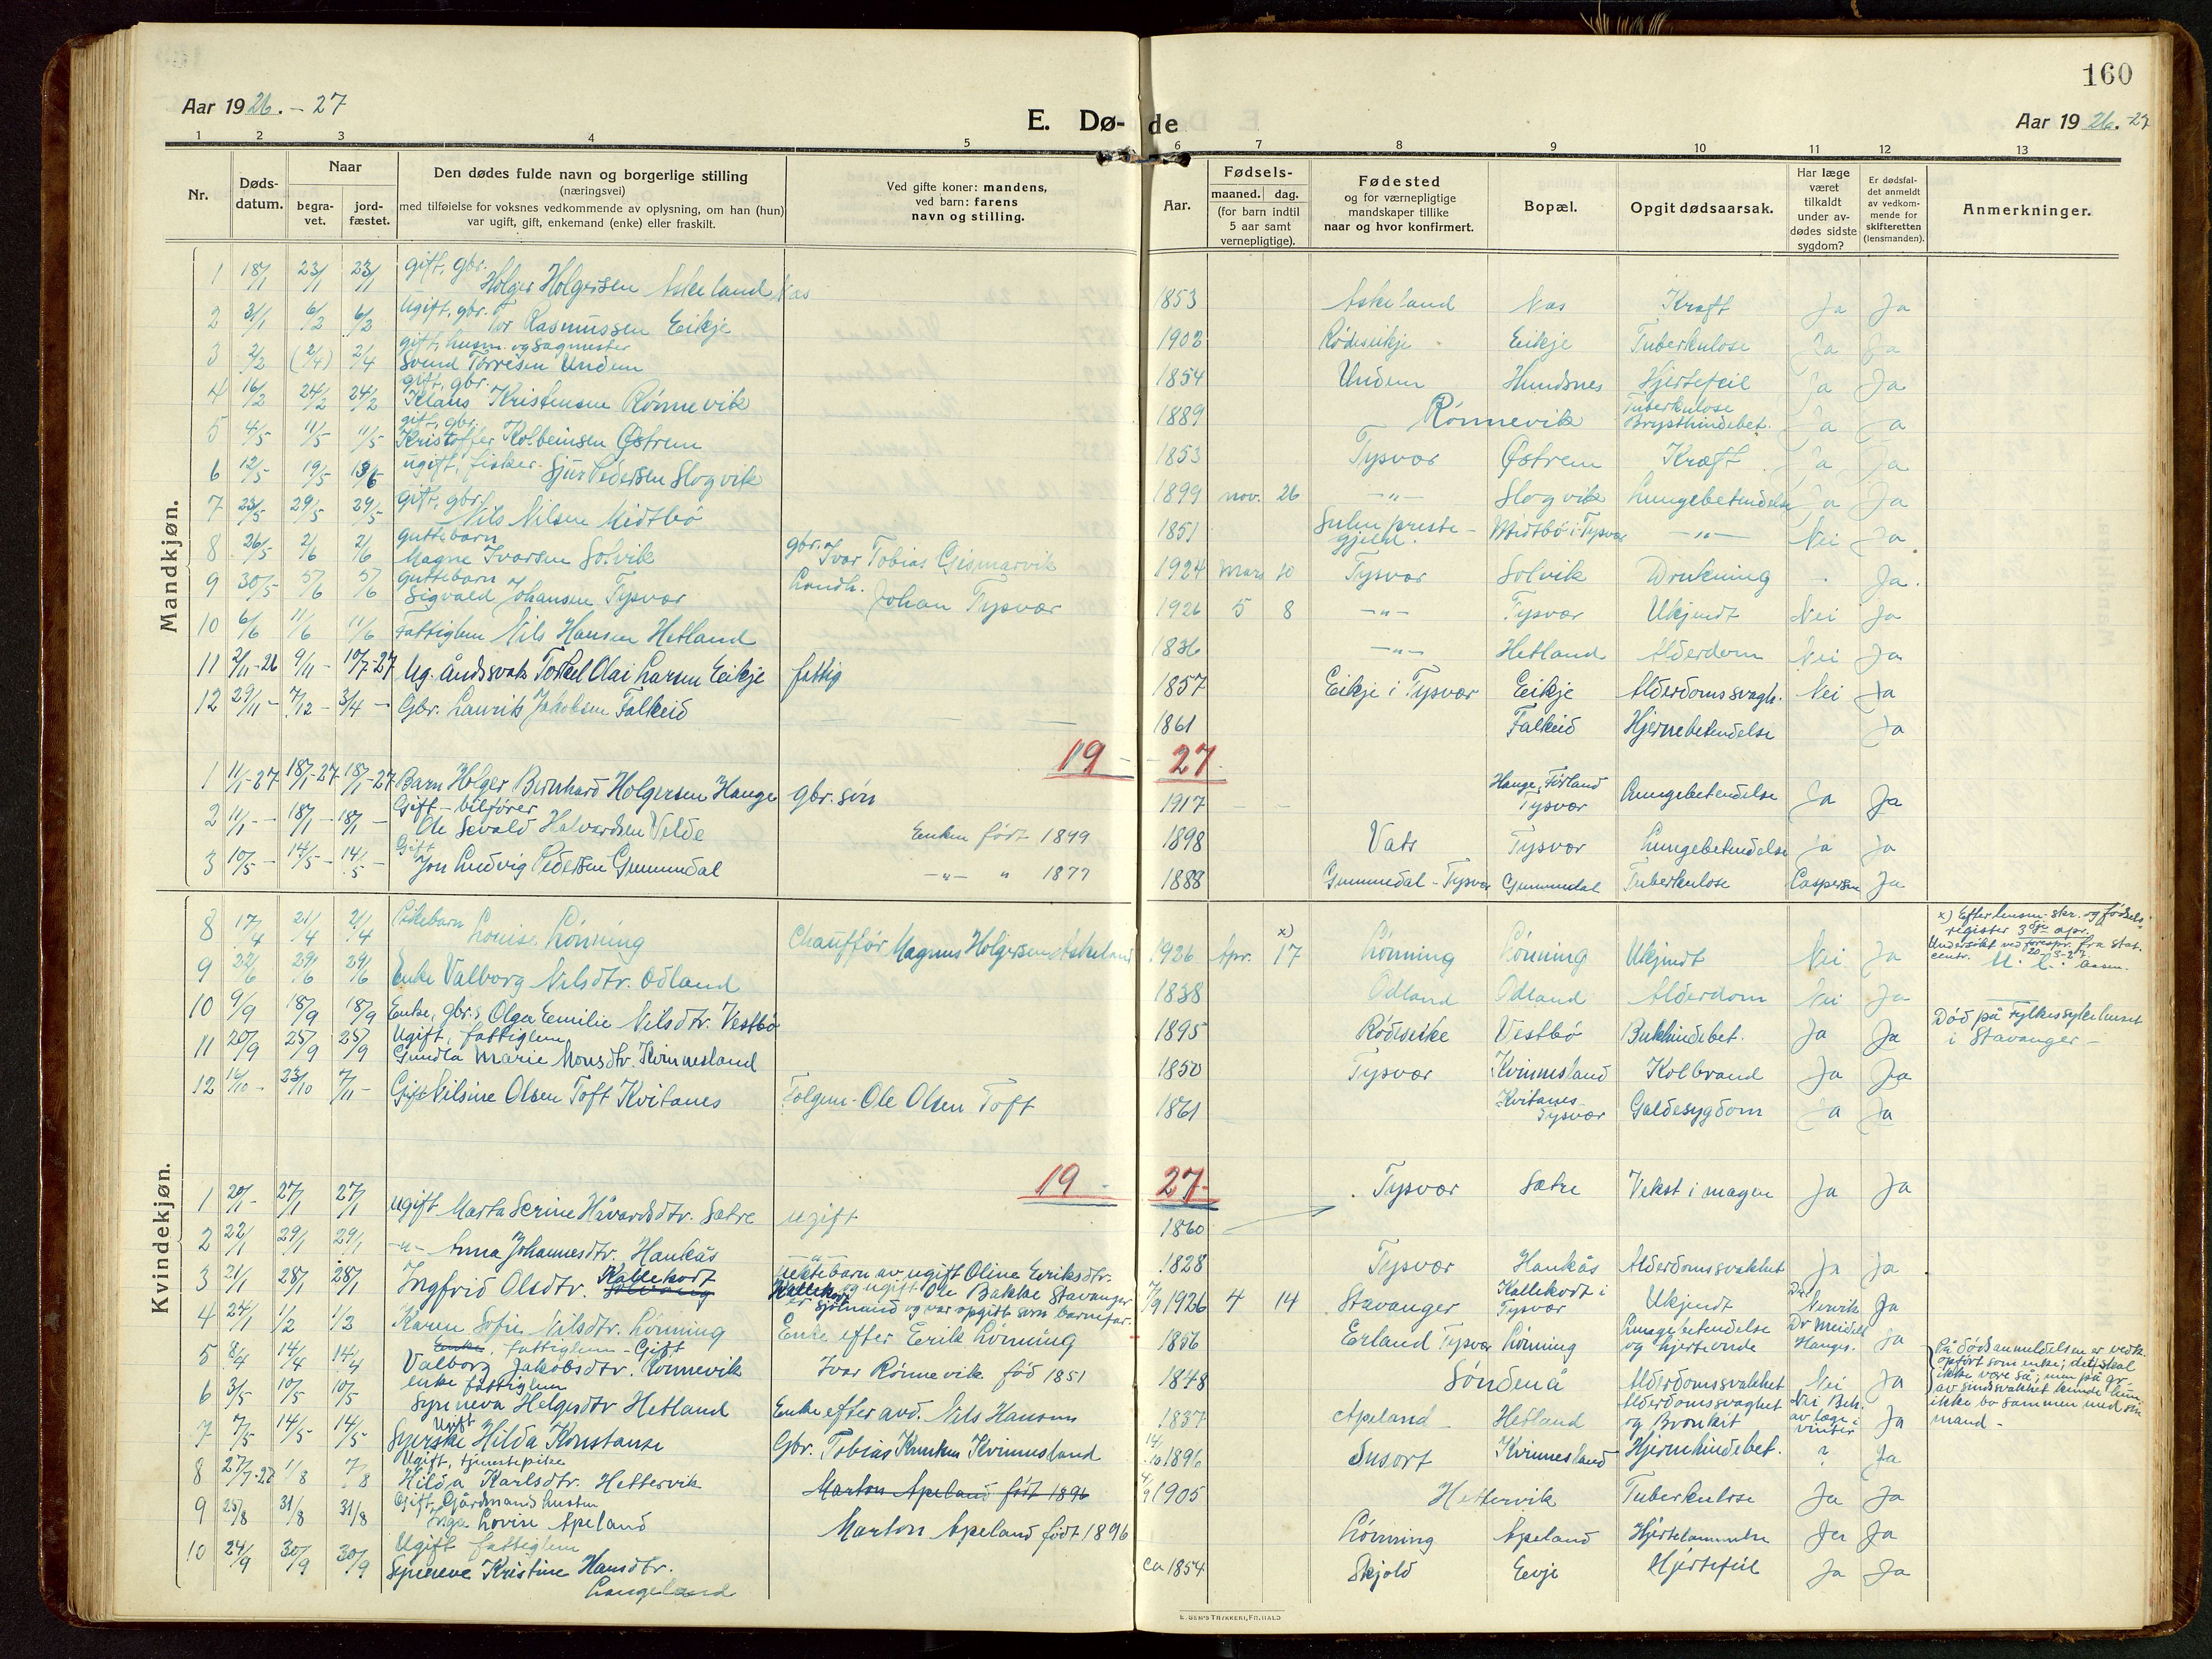 160
Aar 1926. - 27
E. Dø-de
Aar 1926. - 27
1 2 3 4 5 6 7 8 9 10 11 12 13
Nr.
Døds-datum.
Naar
begra-vet.
jord-fæstet.
Den dødes fulde navn og borgerlige stilling
(næringsvei)
med tilføielse for voksnes vedkommende av oplysning, om han (hun)
var ugift, gift, enkemand (enke) eller fraskilt.
Ved gifte koner: mandens,
ved barn: farens
navn og stilling.
Aar.
Fødsels-
maaned. dag.
(for barn indtil
5 aar samt
vernepligtige).
Fødested
og for værnepligtige
mandskaper tillike
naar og hvor konfirmert.
Bopæl.
Opgit dødsaarsak.
Har læge
været
tilkaldt
under av-
dødes sidste
sygdom?
Er dødsfal-
det anmeldt
av vedkom-
mende for
skifteretten
(lensmanden).
Anmerkninger.
Mandkjøn.
1 18/1 23/1 23/1 gift, gbr. Holger Holgersen Askeland Nes 1853 Askeland Nes Kræft Ja Ja
2 31/1 6/2 6/2 Ugift, gbr. Tor Rasmussen Eikje 1902 Rødseikje Eikje Tuberkulose Ja Ja
3 2/2 (2/4) 2/4 gift, husm. og sagmester Svend Torresen Undem 1854 Undem Hundsnes Hjertefeil Ja Ja
4 16/2 24/2 24/2 gift, gbr. Klaus Kristensen Rønnevik 1889 Rønnevik Tuberkulose Brysthindebet. Ja Ja
5 4/5 11/5 11/5 gift, gbr. Kristoffer Kolbeinsen Østrem 1853 Tysvær Østrem Kræft Ja Ja
6 12/5 19/5 13/6 ugift, fisker. Sjur Pedersen Slogvik 1899 nov. 26 -"- Slogvik Lungebetendelse Ja Ja
7 23/5 29/5 29/5 gift, gbr. Nils Nilsen Midtbø 1851 Sulen preste-gjeld. Midtbø i Tysvær -"- Nei Ja
8 26/5 2/6 2/6 guttebarn Magne Ivarsen Solvik gbr. Ivar Tobias Gismarvik 1924 Mars 10 Tysvær Solvik Drukning - Ja.
9 30/5 5/6 5/6 guttebarn Sigvald Johansen Tysvær Landh. Johan Tysvær 1926 5 8 -"- Tysvær Ukjendt Nei Ja
10 6/6 11/6 11/6 Fattiglem Nils Hansen Hetland 1836 -"- Hetland Alderdom Nei Ja
11 2/11-26 9/11- 10/7-27 Ug. åndsvak Torkel Olai Larsen Eikje fattig 1857 Eikje i Tysvær Eikje Alderdomssvagh. Nei Ja
12 29/11- 7/12- 3/4- Gbr. Laurits Jakobsen Falkeid 1861 Falkeid Hjernebetendelse Ja
19 - 27.
1 11/1-27 18/1-27 18/1-27 Barn Holger Bernhard Holgersen Hauge gbr. søn 1917 - - Hauge, Førland Tysvær Lungebetendelse Ja Ja
2 11/1 - 18/1 - 18/1 - Gift - bilfører Ole Sevald Halvardsen Velde Enken født 1899 1898 Vats Tysvær Lungebetendelse Ja Ja
3 10/5 - 14/5 - 14/5 - Gift Jon Ludvig Pedersen Grummedal -"- " 1877 1888 Grummedal - Tysvær Grummedal Tuberkulose Caspersen Ja
Kvindekjøn.
8 17/4 21/4 21/4 Pikebarn Louise Lønning Chauffør Magnus Holgersen Askeland 1926 Apr. x) 17 Lønning Lønning Ukjendt Nei Ja x) Efter lensm. skr. og fødsels-register 3dje apr. Undersøkt ved forespr. fra Stat. centr. 20-5-27.
9 22/6 29/6 29/6 Enke Valborg Nilsdtr. Odland 1838 Odland Odland Alderdom Nei Ja
10 9/9 18/9 18/9 Enke, gbr.s Olga Emilie Nilsdtr. Vestbø 1895 Rødseike Vestbø Bukhindebet. Ja Ja Død på Fylkessykehuset i Stavanger -
11 20/9 25/9 25/9 Ugift, fattiglem Gundla Marie Monsdtr. Kvinnesland 1850 Tysvær Kvinnesland Kolbrand Ja Ja
12 16/10 - 23/10 7/11 - Gift Nilsine Olsen Toft Kvitanes Følgem. Ole Olsen Toft 1861 Kvitanes Tysvær Galdesygdom Ja Ja
19 - 27.
1 20/1 - 27/1 27/1 Ugift Marta Serine Håvardsdtr. Sætre ugift 1860 Tysvær Sætre Vekst i magen Ja Ja
2 22/1 29/1 29/1 -"- Anna Johannesdtr. Haukås -"- 1828 Tysvær Haukås Alderdomssvakhet Ja Ja
3 21/1 28/1 28/1 Ingfrid Olsdtr. Kallekodt uektebarn av ugift Oline Eriksdtr. Kallekodt og ugift Ole Bakke Stavanger er sjømand og var opgift som barnefar. 7/9 1926 4 14 Stavanger Kallekodt i Tysvær Ukjendt Dr. Nervik Ja
4 24/1 1/2 1/2 Karen Sofie Nilsdtr. Lønning Enke efter Erik Lønning 1856 Erland Tysvær Lønning Lungebetendelse og hjerteonde Dr Meidell Hauges. Ja
5 8/4 14/4 14/4 Enke, fattiglem - Gift Valborg Jakobsdtr. Rønnevik Ivar Rønnevik fød 1851 1848 Søndenå Alderdomssvakhet Nei Ja På dødsanmeldelsen er vedk. opført som enke; det skal ikke være så; men på gr. av sindssvakhet kunde hun ikke bo sammen med sin mand -
6 3/5 10/5 10/5 enke fattiglem Syneva Helgesdtr Hetland Enke efter avd. Nils Hansen 1837 Apeland Hetland Alderdomssvaghet og Bronkit Nei Beh. av læge i vinter Ja
7 7/5 14/5 14/5 Ugift Syerske Hilda Konstanse Gbr. Tobias Knutsen Kvinnesland 14/10 1896 Susort Kvinnesland Hjernehindebet. ? Ja
8 27/7-27 1/8 7/8 Ugift, tjenestepike Hilda Karlsdtr. Hettervik Marton Apeland født 1896 4/9 1905 Hettervik Tuberkulose Ja Ja
9 25/8 31/8 31/8 Gift, Gårdmandshustru Inga Lovise Apeland Marton Apeland født 1896 Lønning Apeland Hjertelammelse Ja Ja
10 24/9 30/9 30/9 Ugift fattiglem Syneve Kristine Hansdtr. Langeland ca 1854 Skjold Eevje Hjertefeil Ja Ja